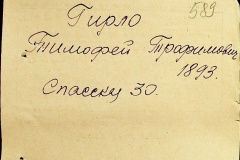 589
Гизло
Тимофей Трофимович
1893.
Спасску 30.